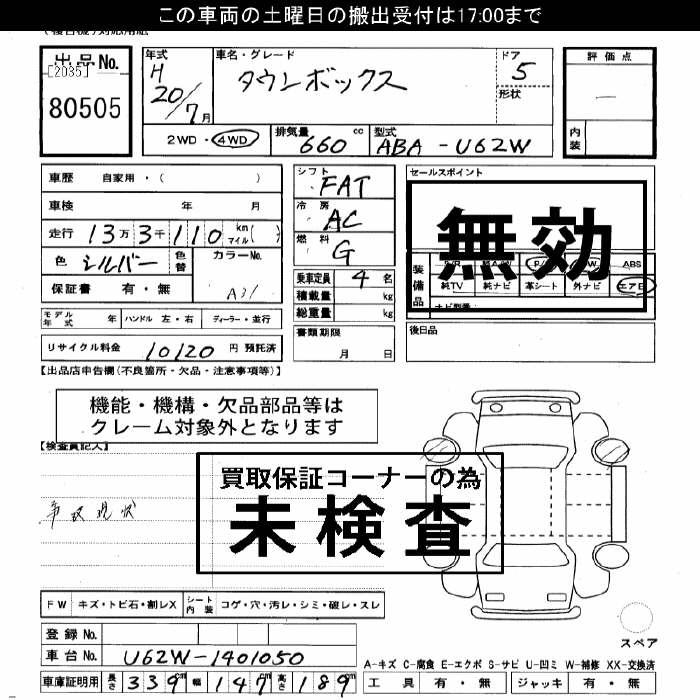 この車両の土曜日の搬出受付は17:00まで
出品No.
[2035]
80505
年式
H
20/7月
車名・グレード
タウンボックス
ドア
5
形状
評価点
内装
2WD・4WD
排気量
660 cc
型式
ABA-U62W
車歴 自家用・( )
車検 年 月
走行 13万3千110 km マイル( )
色 シルバー
色替
カラーNo.
A31
保証書 有・無
シフト
FAT
冷房
AC
燃料
G
乗車定員 4 名
積載量 kg
総重量 kg
書類期限
月 日
セールスポイント
無効
装備品
ABS
純TV 純ナビ 革シート 外ナビ エアB
後日品
モデル年式 年 ハンドル 左・右 ディーラー・並行
リサイクル料金 10120 円 預託済
【出品店申告欄(不良箇所・欠品・注意事項等)】
機能・機構・欠品部品等は
クレーム対象外となります
【検査員記入】
買取保証コーナーの為
未検査
事故現状
FW キズ・トビ石・割レX シート内装 コゲ・穴・汚レ・シミ・破レ・スレ
登録No.
車台No. U62W-1401050
車庫証明用 長さ 339m 幅 147m 高さ 189m
スペア
A-キズ C-腐食 E-エクボ S-サビ U-凹ミ W-補修 XX-交換済
工具 有・無 ジャッキ 有・無